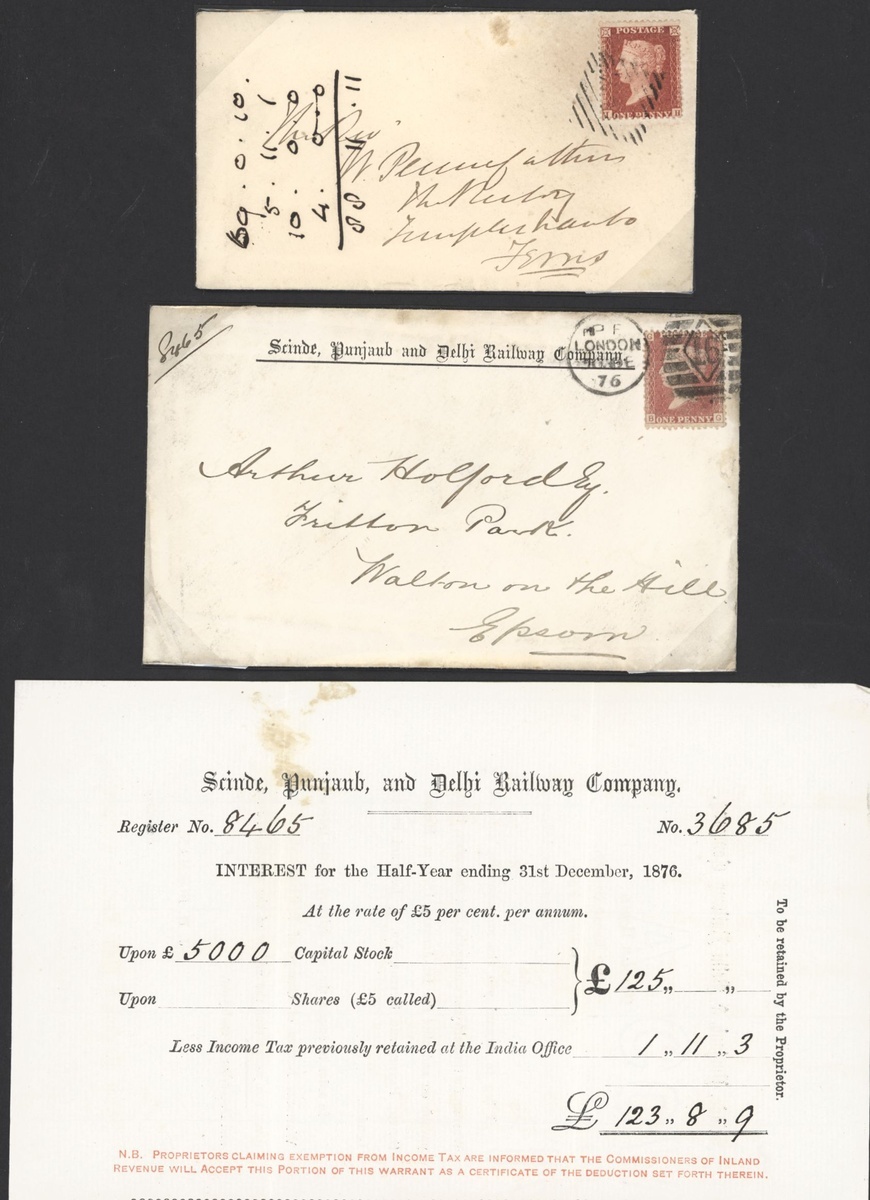 POSTAGE
ONE PENNY
69 . 0 . 10.
5 . 11 . 1
10 . 0 0
4 . 0 . 0
88 11 . 11
The Rev
W. Pennefather
The Rectory
Templeshanbo
Ferns
8465
Scinde, Punjaub and Delhi Railway Company.
LONDON
76
ONE PENNY
Arthur Holford Esq.
Fritton Park.
Walton on the Hill
Epsom
Scinde, Punjaub, and Delhi Railway Company.
Register No. 8465 No. 3685
INTEREST for the Half-Year ending 31st December, 1876.
At the rate of £5 per cent. per annum.
Upon £ 5000 Capital Stock
£ 125 „ „
Upon Shares (£5 called)
Less Income Tax previously retained at the India Office 1 „ 11 „ 3
£ 123 „ 8 „ 9
To be retained by the Proprietor.
N.B. PROPRIETORS CLAIMING EXEMPTION FROM INCOME TAX ARE INFORMED THAT THE COMMISSIONERS OF INLAND
REVENUE WILL ACCEPT THIS PORTION OF THIS WARRANT AS A CERTIFICATE OF THE DEDUCTION SET FORTH THEREIN.